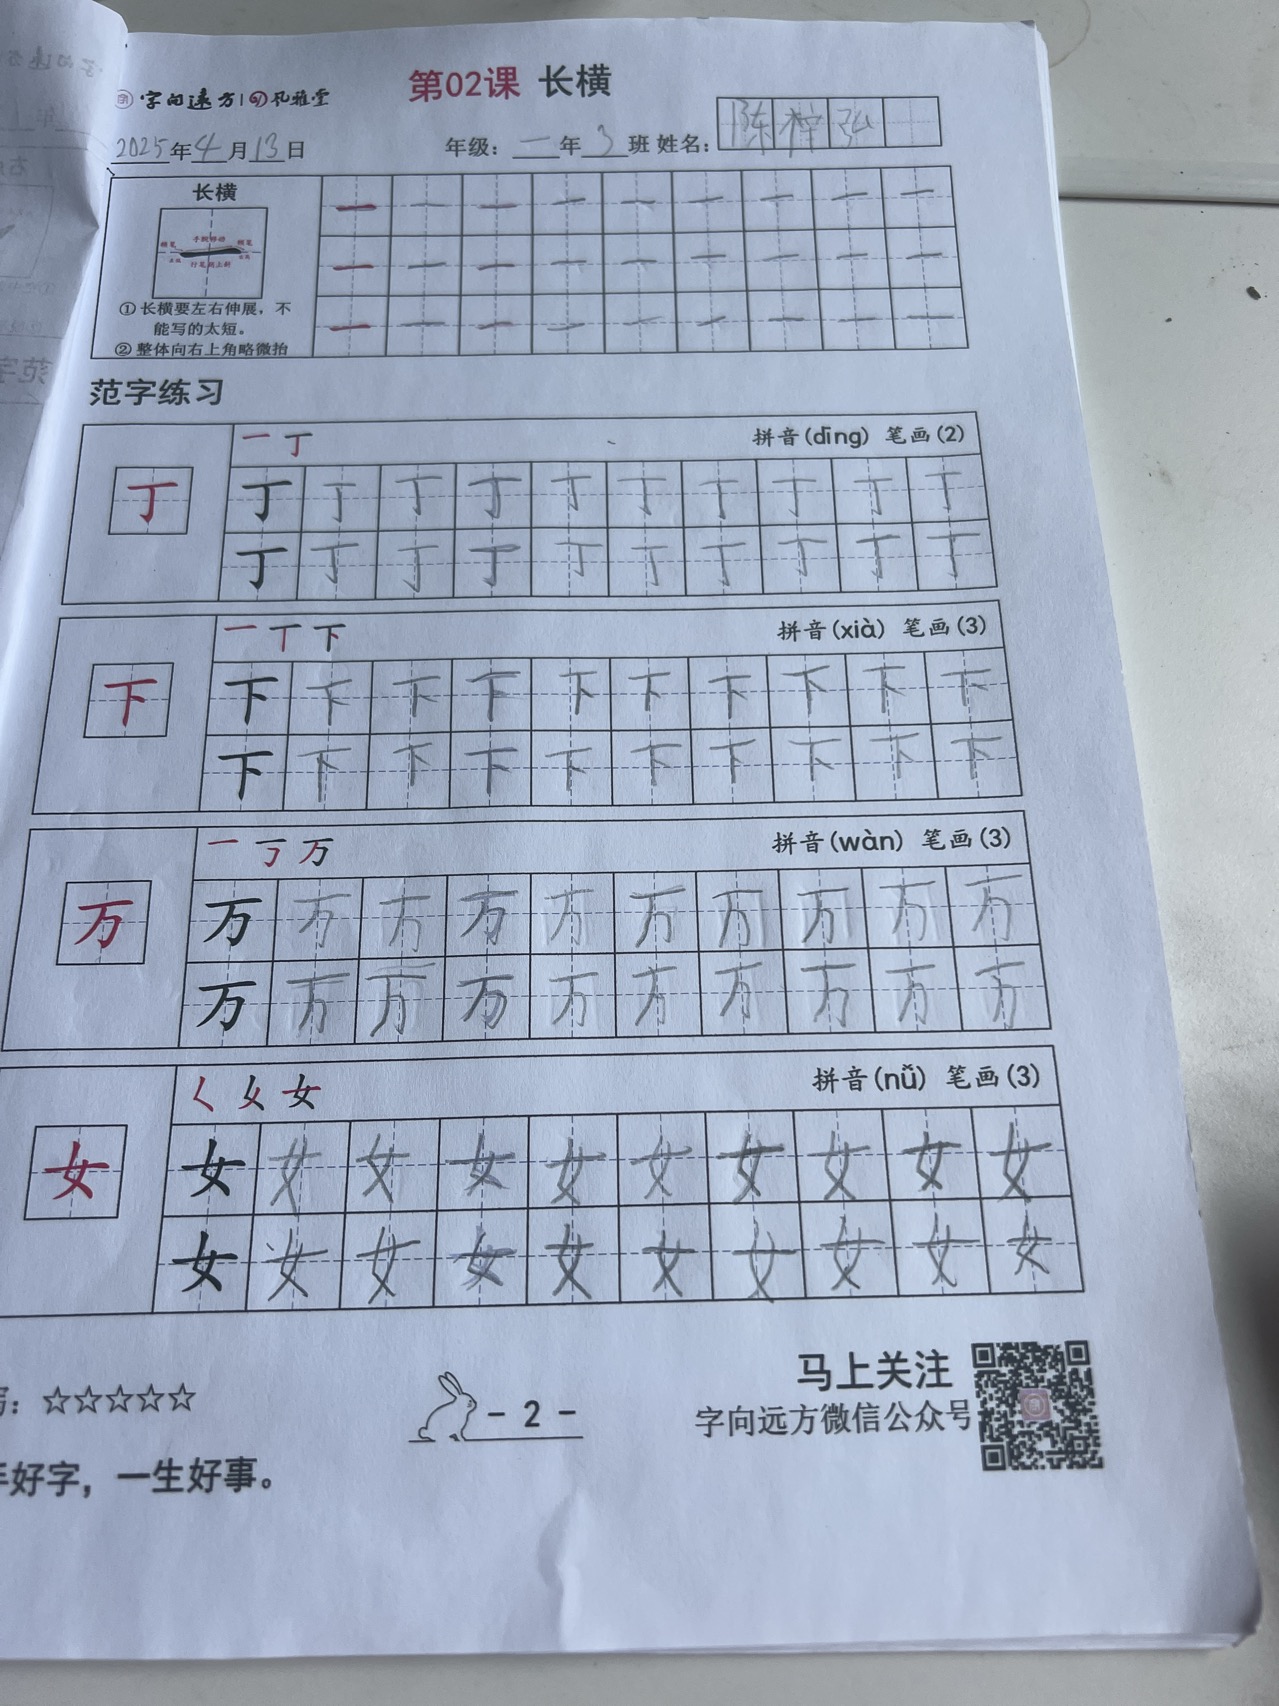 字向遠方 风雅堂
第02课 长横
2025年4月13日 年级：一年3班 姓名：陈梓弘
长横
手腕移动
行笔稍上斜
①长横要左右伸展，不
能写的太短。
②整体向右上角略微抬
一 一 一 一 一 一 一 一 一
一 一 一 一 一 一 一 一 一
一 一 一 一 一 一 一 一 一
范字练习
一 丁 拼音(dīng) 笔画(2)
丁
丁 丁 丁 丁 丁 丁 丁 丁 丁 丁
丁 丁 丁 丁 丁 丁 丁 丁 丁 丁
一 丅 下 拼音(xià) 笔画(3)
下
下 下 下 下 下 下 下 下 下 下
下 下 下 下 下 下 下 下 下 下
一 丁 万 拼音(wàn) 笔画(3)
万
万 万 万 万 万 万 万 万 万 万
万 万 万 万 万 万 万 万 万 万
く 女 女 拼音(nǚ) 笔画(3)
女
女 女 女 女 女 女 女 女 女 女
女 女 女 女 女 女 女 女 女 女
☆☆☆☆☆
- 2 -
马上关注
字向远方微信公众号
手好字，一生好事。